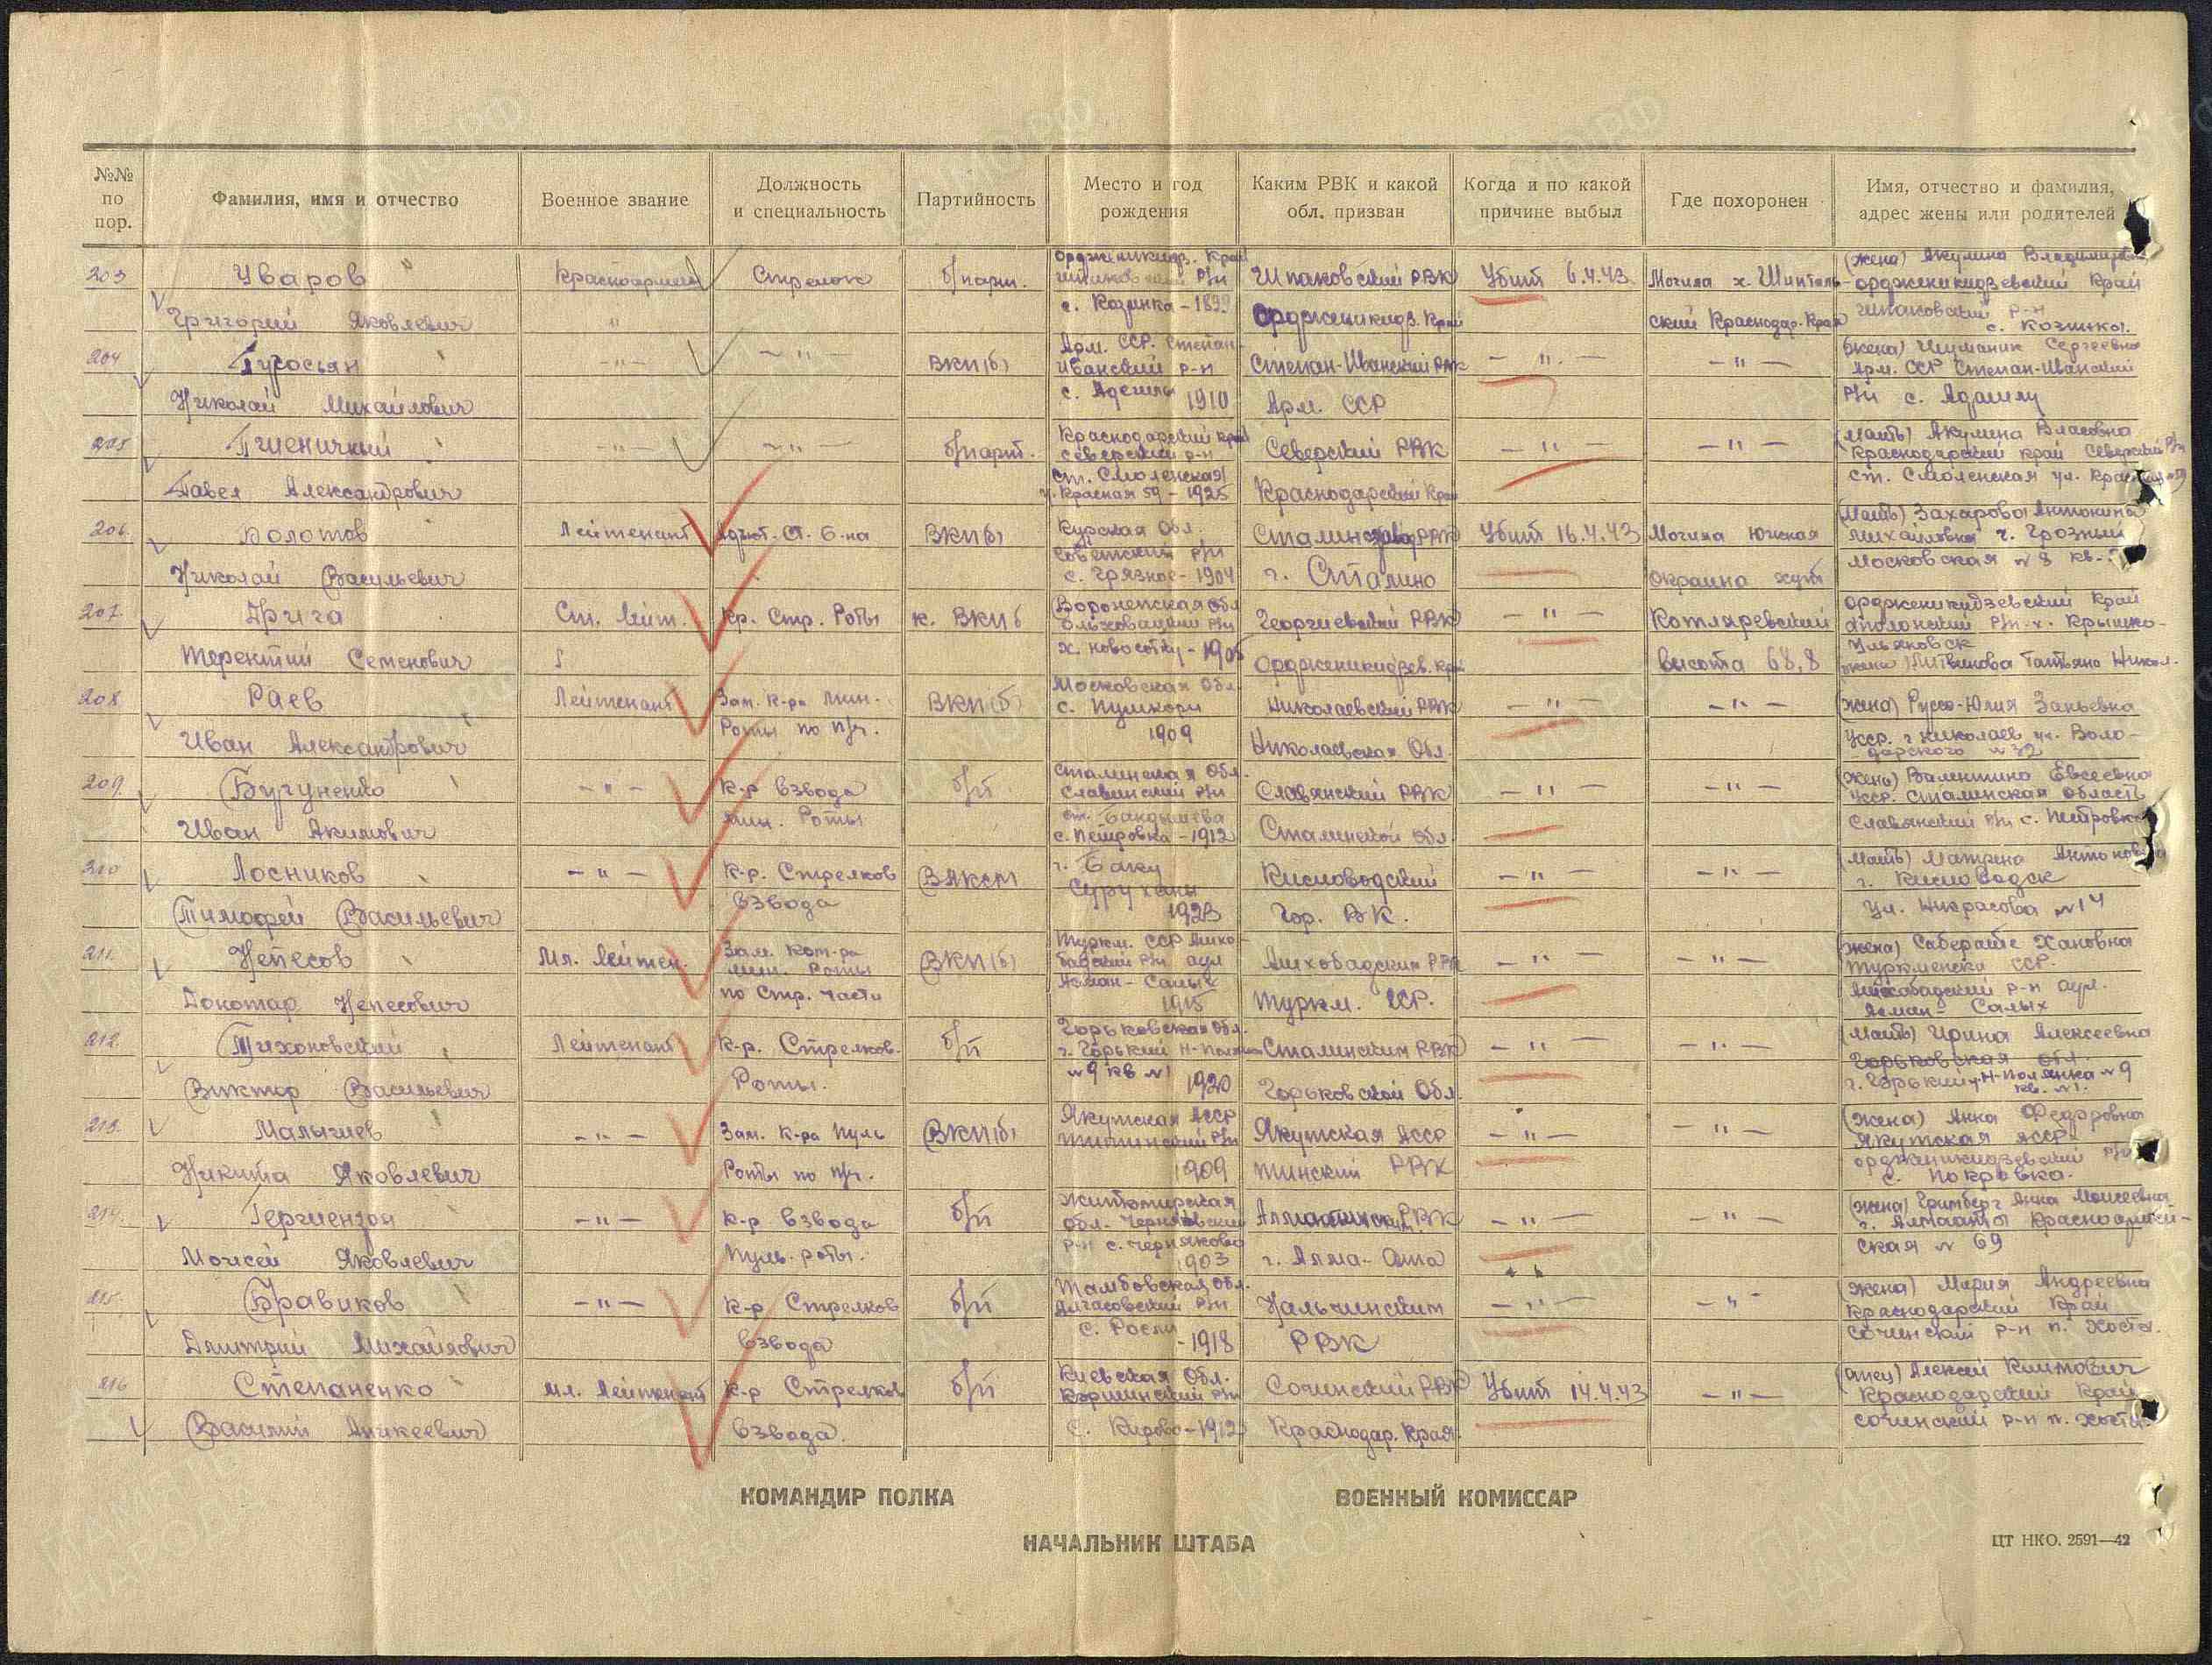 №№ по пор. Фамилия, имя и отчество Военное звание Должность и специальность Партийность Место и год рождения Каким РВК и какой обл. призван Когда и по какой причине выбыл Где похоронен Имя, отчество и фамилия, адрес жены или родителей
203 Уваров Красноармеец Стрелок б/парт. Орджоникидз. Край Шпаковский РВК Убит 6.4.43 Могила х. Шинталь- (жена) Акулина
Р/н Орджоникидзевский Край
Григорий Яковлевич с. Козинка - 1899 Орджоникидз. Край ский Краснодар. Края Шпаковский р-н
с. Козинка.
204 — " — — " — ВКП(б) Арм. ССР. Степан- Степан-Иванский РВК — " — — " — (жена) Шушаник Сергеевна
Иванский р-н Арм. ССР Степан-Иванский
Николай Михайлович с. 1910 Арм. ССР Р/н с.
205 Пшеничный — " — — " — б/парт. Краснодарский край Северский РВК — " — — " — (мать) Акулина Власовна
Северский р-н Краснодарский край Северский Р/н
Павел Александрович ст. Смоленская Краснодарский Край ст. Смоленская ул.
Красная 59 - 1925
206. Болотов Лейтенант Адъют. Ст. б-на ВКП(б) Курская Обл. РВК Убит 16.4.43 Могила Южная (мать) Захарова Антонина
Советский Р/н Михайловна г. Грозный
Николай Васильевич с. Грязное - 1904 г. Сталино окраина хут. Московская № 8 кв.
207. Дрига Ст. Лейт. Кр. Стр. Роты к. ВКПб Воронежская обл. Георгиевский РВК — " — Котляревский Орджоникидзевский Край
Р/н Р/н х.
Терентий Семенович х. - 1905 Орджоникидзев. край высота 68,8 Ульяновск
жена Литвинова Татьяна Никол.
208. Раев Лейтенант Зам. к-ра Мин. ВКП(б) Московская Обл. Николаевский РВК — " — — " — (жена) Руссо-Юлия
с. Пушкори
Иван Александрович Роты по п/ч. 1909 Николаевская Обл. УССР. г. Николаев ул. Воло-
дарского № 32
209. Бугуненко — " — К-р Взвода б/п Сталинская Обл. Славянский РВК — " — — " — (жена) Валентина Евсеевна
Славянский Р/н УССР. Сталинская область
Иван Акимович мин. Роты ст. Сталинской обл. Славянский Р/н с. Петровка
с. Петровка - 1912
210 Лосников — " — К-р. Стрелков ВЛКСМ г. Баку Кисловодский — " — — " — (мать) Матрена
Сураханы г. Кисловодск
Тимофей Васильевич взвода 1923 Гор. ВК. Ул. Некрасова № 14
211. Непесов Мл. Лейтен. Зам. ком-ра ВКП(б) Туркм. ССР РВК — " — — " — (жена) Хановна
мин. Роты Р/н аул Туркменская ССР.
Непесович по Стр. части 1915 Туркм. ССР. р-н аул.
212. Тихоновский Лейтенант К-р. Стрелков. б/п Горьковская Обл. Сталинским РВК — " — — " — (мать) Ирина Алексеевна
г. Горький Горьковская обл.
Виктор Васильевич Роты. № 9 кв № 1 1920 Горьковской Обл. г. Горький № 9
кв. № 1.
213. Малычев — " — Зам. к-ра Пуль ВКП(б) Якутская АССР Якутская АССР — " — — " — (жена) Анна Федоровна
Р/н Якутская АССР.
Никита Яковлевич Роты по п/ч. 1909 РВК Орджоникидзевский Р/н
с. Покровка.
214. Гершензон — " — К-р Взвода б/п Житомирская РВК — " — — " — (жена) Гринберг Анна Моисеевна
обл. Черняховский г. Алмаата Красноармей-
Моисей Яковлевич Пуль. роты. р-н с. 1903 г. Алма-Ата ская № 69
215. Бравиков — " — К-р Стрелков б/п Тамбовская обл. Нальчинским — " — — " — (жена) Мария Андреевна
Р/н Краснодарский Край
Дмитрий Михайлович взвода с. - 1918 РВК Сочинский р-н п. Хоста.
216 Степаненко мл. Лейтенант К-р Стрелков б/п Киевская Обл. Сочинский РВК Убит 14.4.43 — " — (отец) Алексей Климович
Р/н Краснодарский Край
Василий взвода. с. Кирово - 1912 Краснодар. края. Сочинский р-н п. Хоста
КОМАНДИР ПОЛКА ВОЕННЫЙ КОМИССАР
НАЧАЛЬНИК ШТАБА
ЦТ НКО. 2591—42